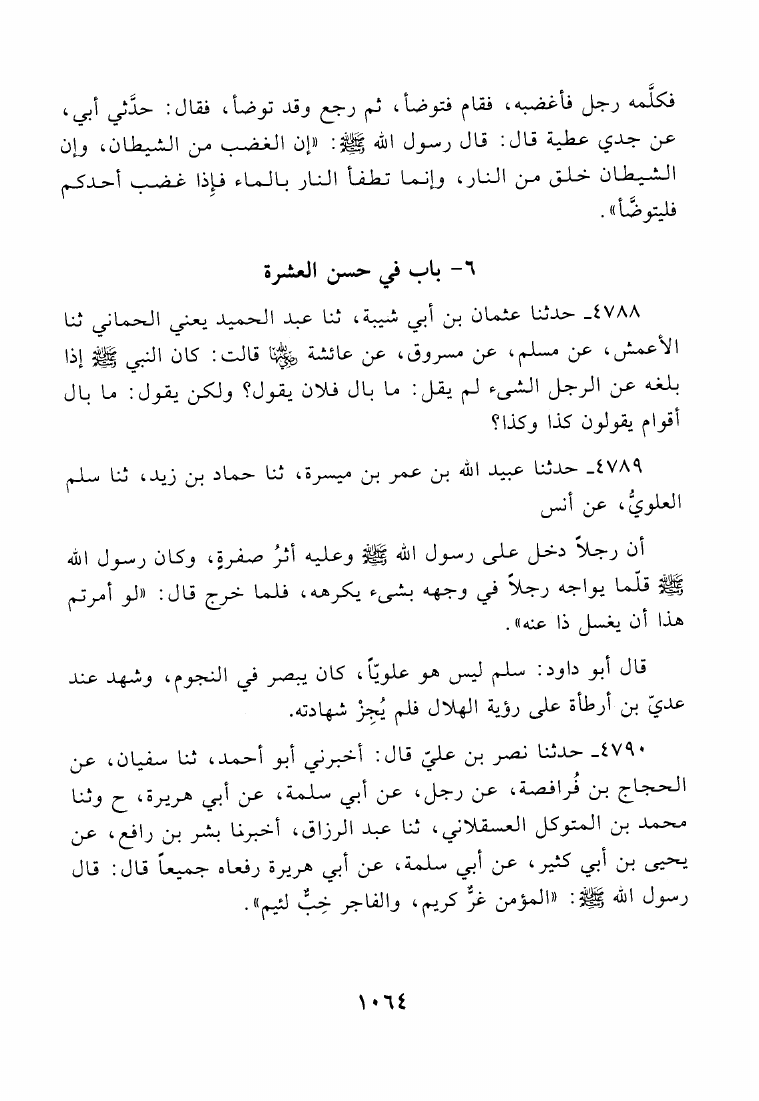 فكلَّمه رجل فأغضبه، فقام فتوضأ، ثم رجع وقد توضأ، فقال: حدَّثني أبي،
عن جدي عطية قال: قال رسول الله ﷺ: «إن الغضب من الشيطان، وإن
الشيطان خلق من النار، وإنما تطفأ النار بالماء فإِذا غضب أحدكم
فليتوضَّأ».
٦- باب في حسن العشرة
٤٧٨٨ـ حدثنا عثمان بن أبي شيبة، ثنا عبد الحميد يعني الحماني ثنا
الأعمش، عن مسلم، عن مسروق، عن عائشة رضي الله عنها قالت: كان النبي ﷺ إذا
بلغه عن الرجل الشىء لم يقل: ما بال فلان يقول؟ ولكن يقول: ما بال
أقوام يقولون كذا وكذا؟
٤٧٨٩ـ حدثنا عبيد الله بن عمر بن ميسرة، ثنا حماد بن زيد، ثنا سلم
العلويُّ، عن أنس
أن رجلاً دخل على رسول الله ﷺ وعليه أثرُ صفرةٍ، وكان رسول الله
ﷺ قلّما يواجه رجلاً في وجهه بشىء يكرهه، فلما خرج قال: «لو أمرتم
هذا أن يغسل ذا عنه».
قال أبو داود: سلم ليس هو علويّاً، كان يبصر في النجوم، وشهد عند
عديّ بن أرطأة على رؤية الهلال فلم يُجِزْ شهادته.
٤٧٩٠ـ حدثنا نصر بن عليّ قال: أخبرني أبو أحمد، ثنا سفيان، عن
الحجاج بن فُرافصة، عن رجل، عن أبي سلمة، عن أبي هريرة، ح وثنا
محمد بن المتوكل العسقلاني، ثنا عبد الرزاق، أخبرنا بشر بن رافع، عن
يحيى بن أبي كثير، عن أبي سلمة، عن أبي هريرة رفعاه جميعاً قال: قال
رسول الله ﷺ: «المؤمن غرٌّ كريم، والفاجر خِبٌّ لئيم».
١٠٦٤